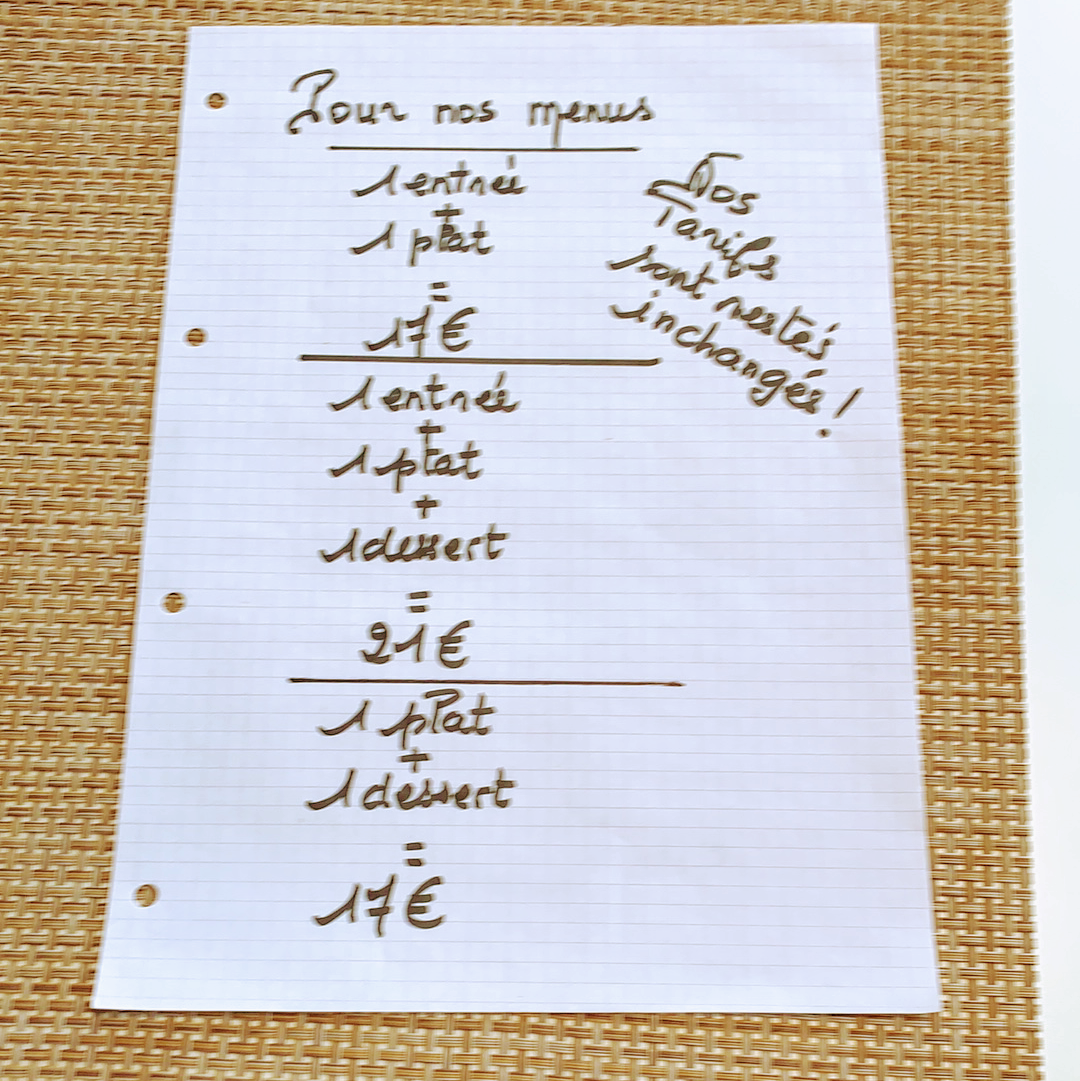 Pour nos menus
1 entrée
+
1 plat
=
17€
1 entrée
+
1 plat
+
1 dessert
=
21€
1 plat
+
1 dessert
=
17€
Nos
Tarifs
sont restés
inchangés!